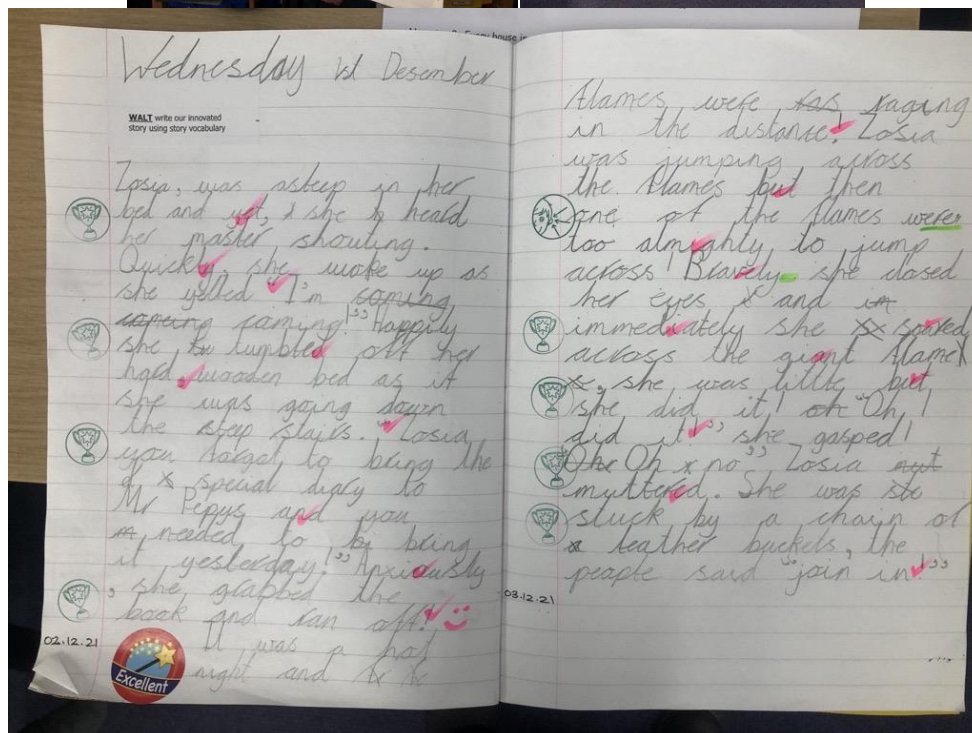 Wednesday 1st Desember
WALT write our innovated
story using story vocabulary
Zosia, was asleep in her
bed and yet, she heard
her master shouting.
Quickly, she woke up as
she yelled "I'm coming
coming coming!" Happily
she tumbled off her
hard, wooden bed as it
she was going down
the steep stairs. "Zosia
you forgot to bring the
special diary to
Mr Pepys and you
needed to bring
it yesterday!" Anxiously
, she grabbed the
book and ran off!
02.12.21
Excellent
It was a hot
night and
house in
flames were raging
in the distance. Zosia
was jumping across
the flames but then
one of the flames were
too almighty to jump
across! Bravely she closed
her eyes and in
immediately she soared
across the giant flame
, she was little but
she did it! oh "Oh, I
did it!" she gasped!
Oh no" Zosia mut
muttered. She was
stuck by a chain of
leather buckets, the
people said "join in!"
03.12.21